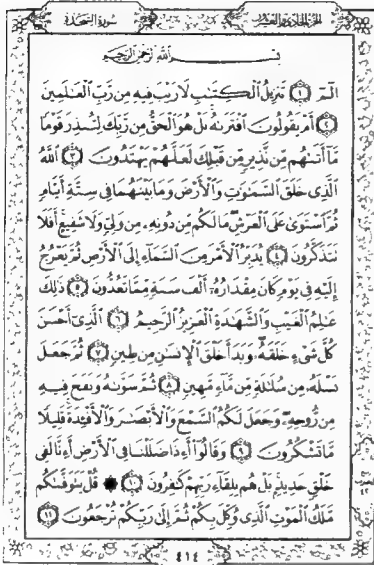 الجزء الحادي والعشرون
سورة السجدة
بسم الله الرحمن الرحيم
الٓمٓ ١ تَنزِيلُ ٱلۡكِتَٰبِ لَا رَيۡبَ فِيهِ مِن رَّبِّ ٱلۡعَٰلَمِينَ
٢ أَمۡ يَقُولُونَ ٱفۡتَرَىٰهُۚ بَلۡ هُوَ ٱلۡحَقُّ مِن رَّبِّكَ لِتُنذِرَ قَوۡمٗا
مَّآ أَتَىٰهُم مِّن نَّذِيرٖ مِّن قَبۡلِكَ لَعَلَّهُمۡ يَهۡتَدُونَ ٣ ٱللَّهُ
ٱلَّذِي خَلَقَ ٱلسَّمَٰوَٰتِ وَٱلۡأَرۡضَ وَمَا بَيۡنَهُمَا فِي سِتَّةِ أَيَّامٖ
ثُمَّ ٱسۡتَوَىٰ عَلَى ٱلۡعَرۡشِۖ مَا لَكُم مِّن دُونِهِۦ مِن وَلِيّٖ وَلَا شَفِيعٍۚ أَفَلَا
تَتَذَكَّرُونَ ٤ يُدَبِّرُ ٱلۡأَمۡرَ مِنَ ٱلسَّمَآءِ إِلَى ٱلۡأَرۡضِ ثُمَّ يَعۡرُجُ
إِلَيۡهِ فِي يَوۡمٖ كَانَ مِقۡدَارُهُۥٓ أَلۡفَ سَنَةٖ مِّمَّا تَعُدُّونَ ٥ ذَٰلِكَ
عَٰلِمُ ٱلۡغَيۡبِ وَٱلشَّهَٰدَةِ ٱلۡعَزِيزُ ٱلرَّحِيمُ ٦ ٱلَّذِيٓ أَحۡسَنَ
كُلَّ شَيۡءٍ خَلَقَهُۥۖ وَبَدَأَ خَلۡقَ ٱلۡإِنسَٰنِ مِن طِينٖ ٧ ثُمَّ جَعَلَ
نَسۡلَهُۥ مِن سُلَٰلَةٖ مِّن مَّآءٖ مَّهِينٖ ٨ ثُمَّ سَوَّىٰهُ وَنَفَخَ فِيهِ
مِن رُّوحِهِۦۖ وَجَعَلَ لَكُمُ ٱلسَّمۡعَ وَٱلۡأَبۡصَٰرَ وَٱلۡأَفۡـِٔدَةَۚ قَلِيلٗا
مَّا تَشۡكُرُونَ ٩ وَقَالُوٓاْ أَءِذَا ضَلَلۡنَا فِي ٱلۡأَرۡضِ أَءِنَّا لَفِي
خَلۡقٖ جَدِيدِۭۚ بَلۡ هُم بِلِقَآءِ رَبِّهِمۡ كَٰفِرُونَ ١٠ ۞ قُلۡ يَتَوَفَّىٰكُم
مَّلَكُ ٱلۡمَوۡتِ ٱلَّذِي وُكِّلَ بِكُمۡ ثُمَّ إِلَىٰ رَبِّكُمۡ تُرۡجَعُونَ ١١
٤١٤